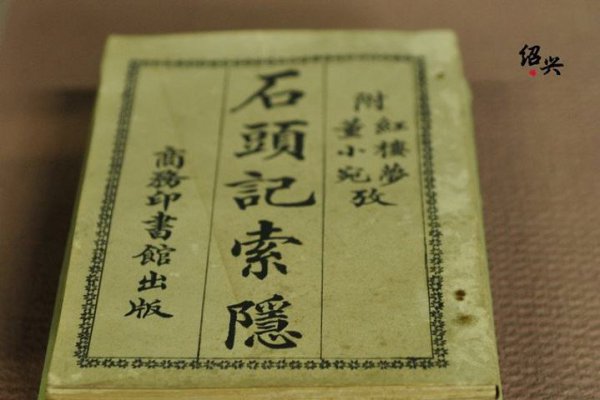 附
紅樓夢
董小宛攷
石頭記索隱
商務印書館出版
绍兴